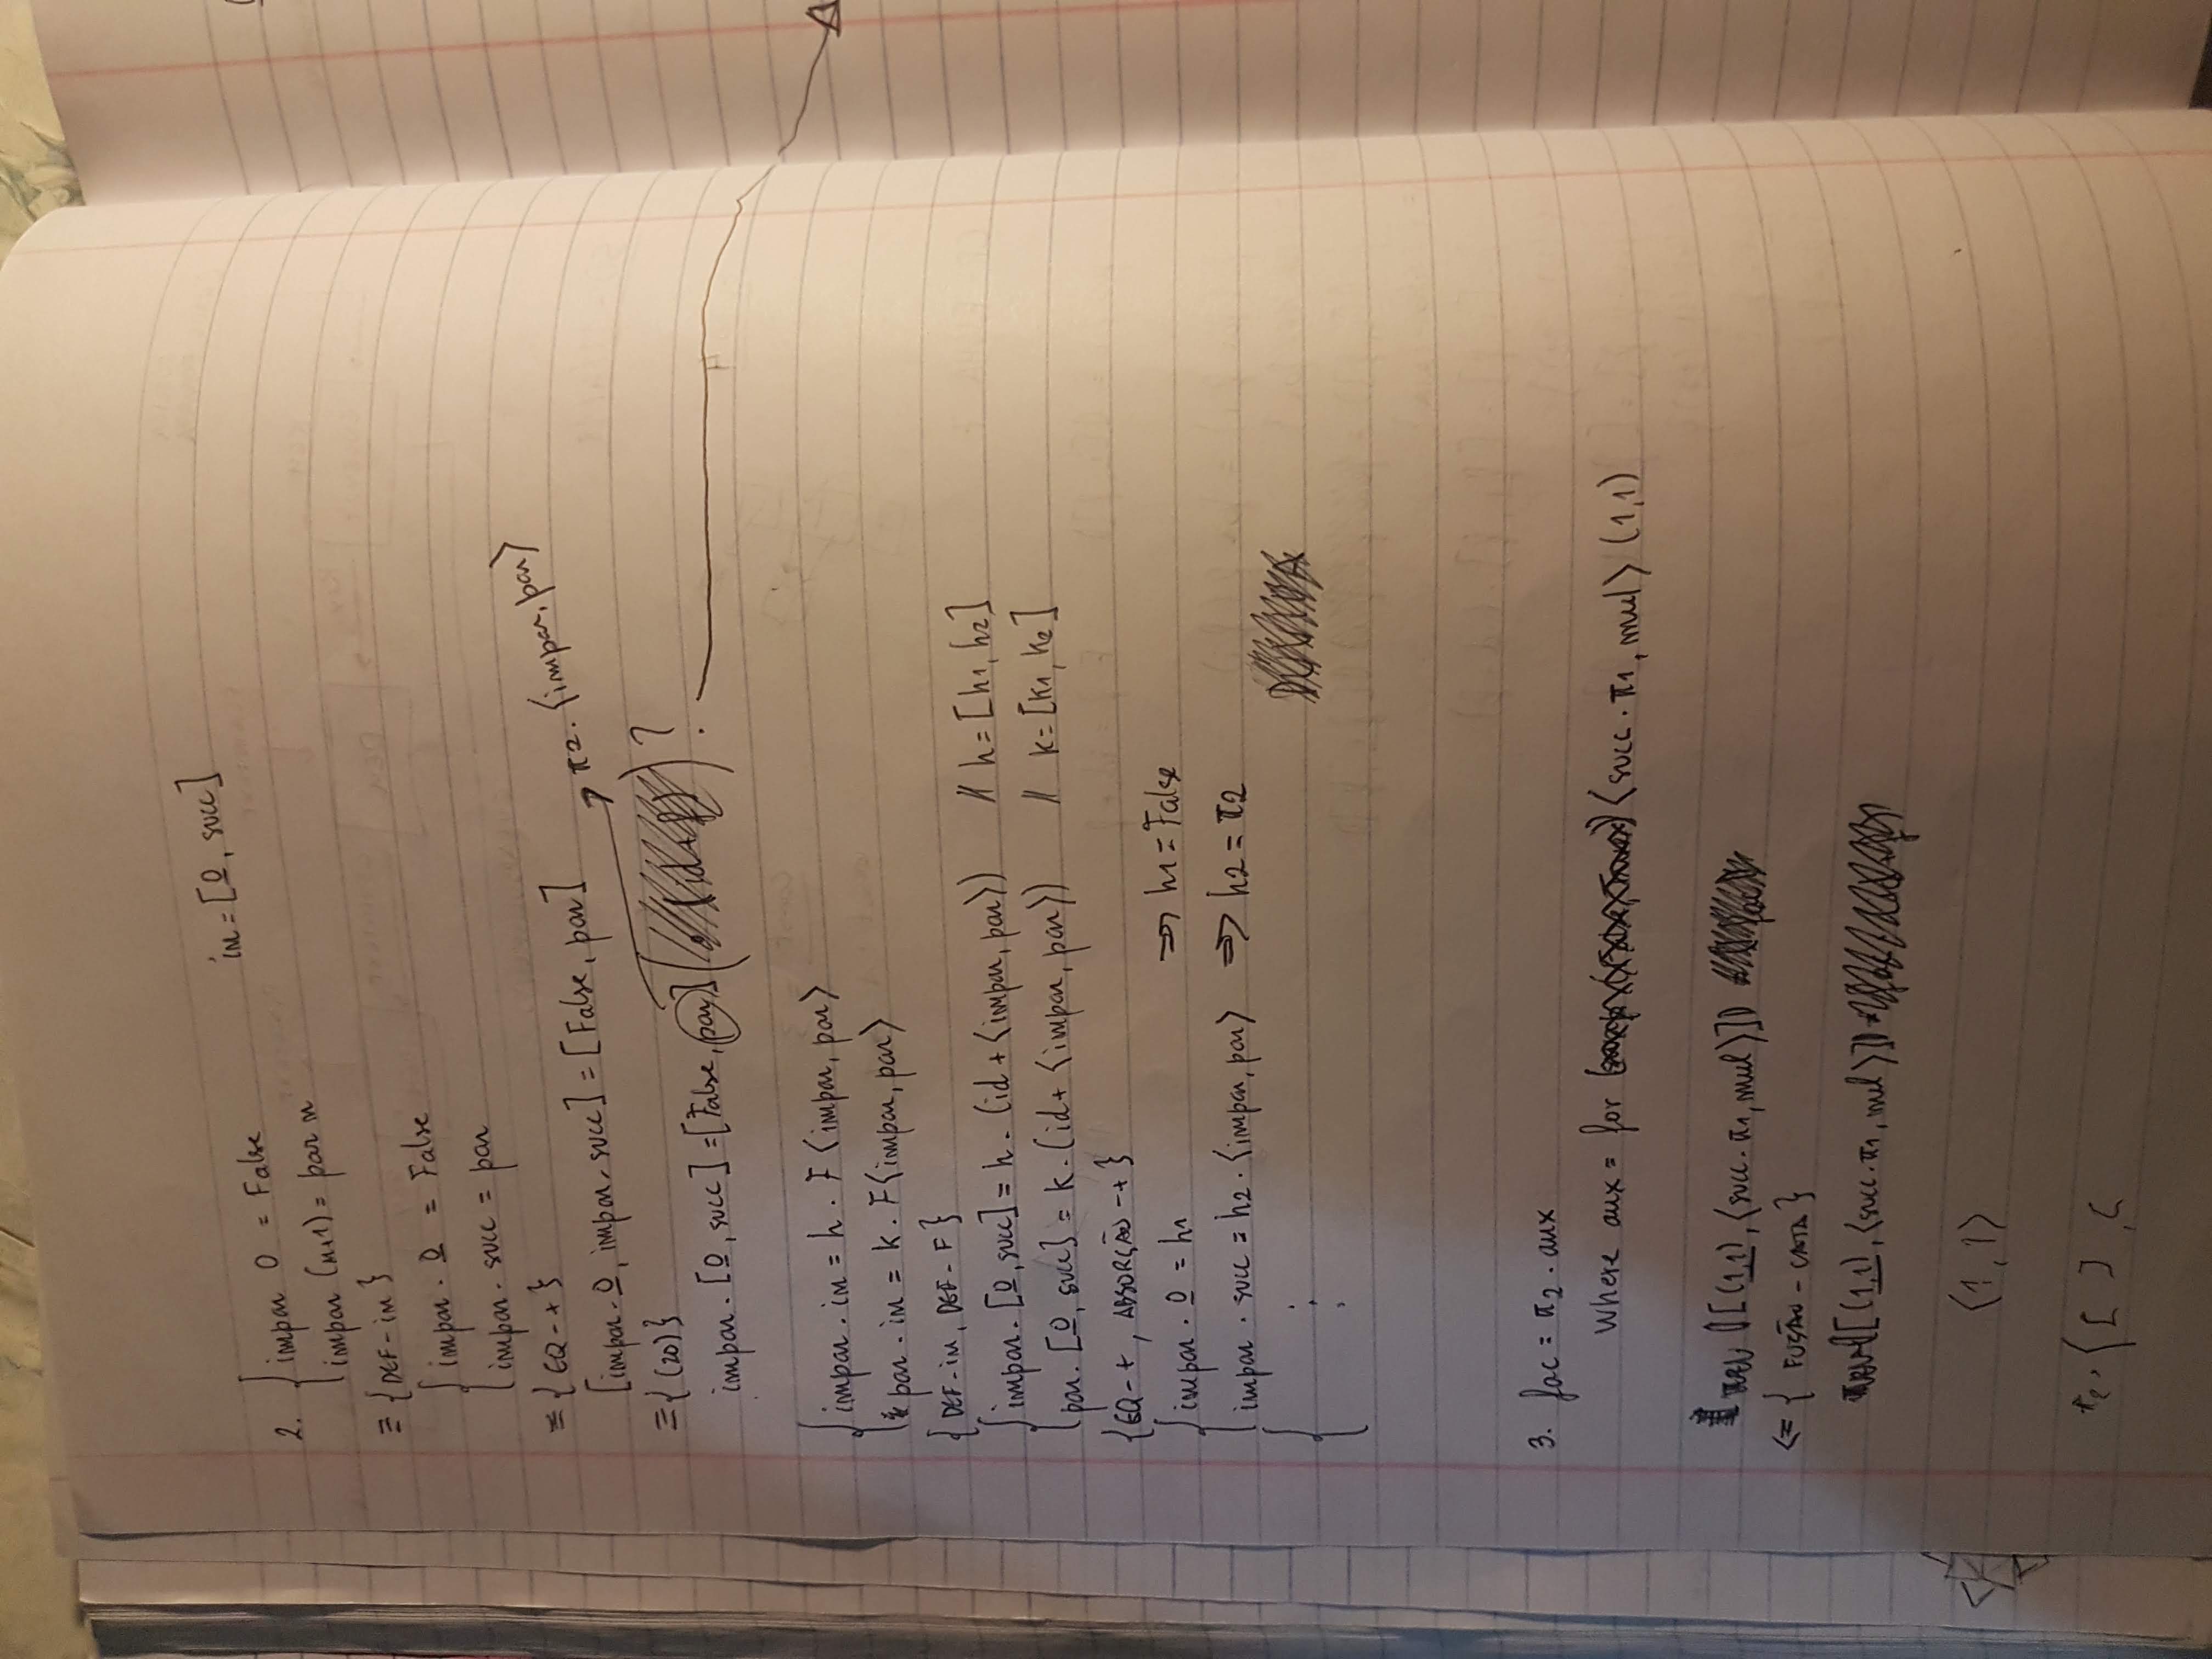 in = [0, succ]
2. { impar 0 = False
impar (n+1) = par n
≡ { DEF-in }
{ impar . 0 = False
impar . succ = par
≡ { EQ-+ }
[impar . 0, impar . succ] = [False, par] → π2 . ⟨impar, par⟩
≡ { (20) }
impar . [0, succ] = [False, par] ( ) ?
{ impar . in = h . F ⟨impar, par⟩
par . in = k . F ⟨impar, par⟩
{ DEF-in, DEF-F }
{ impar . [0, succ] = h . (id + ⟨impar, par⟩) // h = [h1, h2]
par . [0, succ] = k . (id + ⟨impar, par⟩) // k = [k1, k2]
{ EQ-+, ABSORÇÃO-+ }
{ impar . 0 = h1 ⇒ h1 = False
impar . succ = h2 . ⟨impar, par⟩ ⇒ h2 = π2
{ ⋮
3. fac = π2 . aux
where aux = for ⟨succ . π1, mul⟩ (1,1)
⦇[(1,1), ⟨succ . π1, mul⟩]⦈
<= { FUSÃO-CATA }
⦇[(1,1), ⟨succ . π1, mul⟩]⦈
⟨1, 1⟩
π2 . ⟨[ ], [